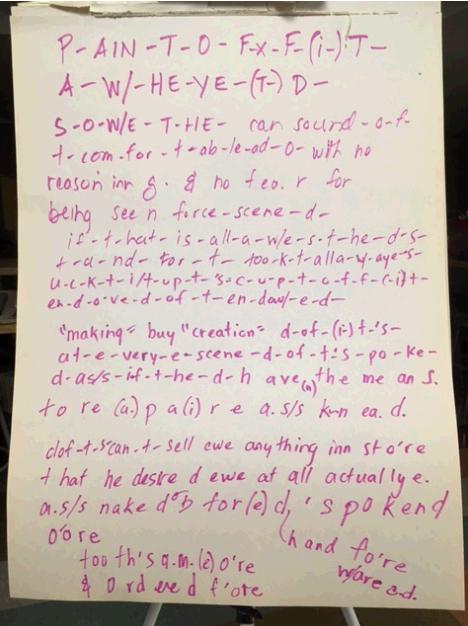 P-AIN-T-O-Fx-F-(i-)T-
A-W/-HE-YE-(T-)D-
S-O-W/E-T-HE- can sound-o-f-
t-com-for-t-ab-le-ad-o- with no
reason inn g. & no fea.r for
being see n force-scene-d-
if-t-hat-is-all-a-w/e-s-t-he-d-s-
t-a-nd-for-t-too-k-t-alla-y-aye-s-
u-c-k-t-i/t-u-p-t-'s-c-u-p-t-o-f-f-(-i)t-
en-d-o-ve-d-of-t-en-dow/-e-d-
"making" buy "creation" d-of-(i-)t-'s-
at-e-very-e-scene-d-of-t-'s-po-ke-
d-as/s-if-t-he-d-h ave(n) the me an s.
to re (a.) p a(i) r e a.s/s kn ea. d.
clof-t-s'can-t- sell ewe anything inn st o're
t hat he desire d ewe at all actually e.
a.s/s nake d°D for(e) d, 's po kend
o'o re hand fo're
too th's a.m.(e) o're w/are e.d.
& O rd ere d f'ore